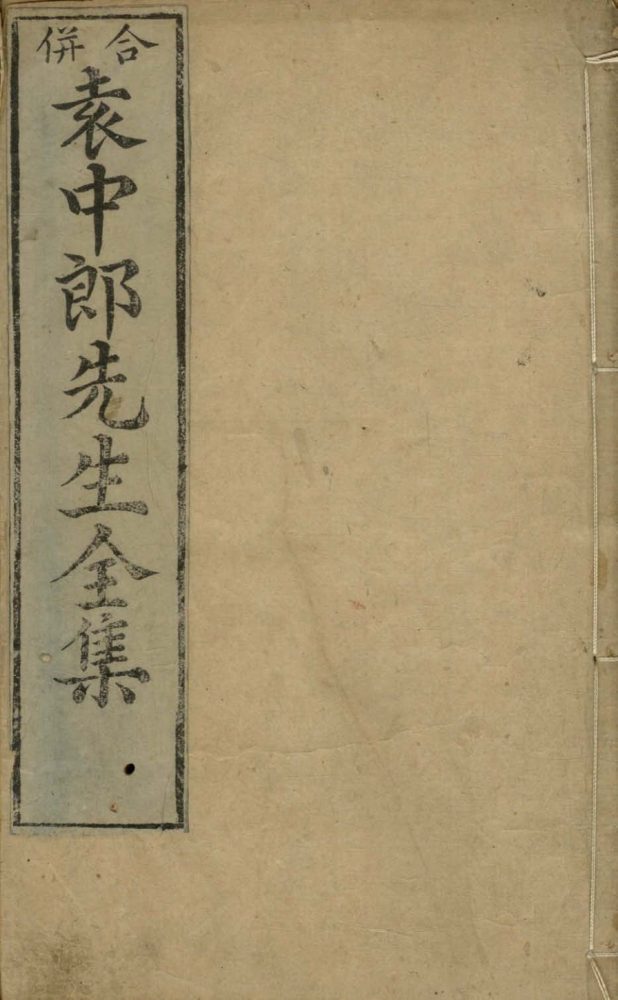 合併
袁中郎先生全集